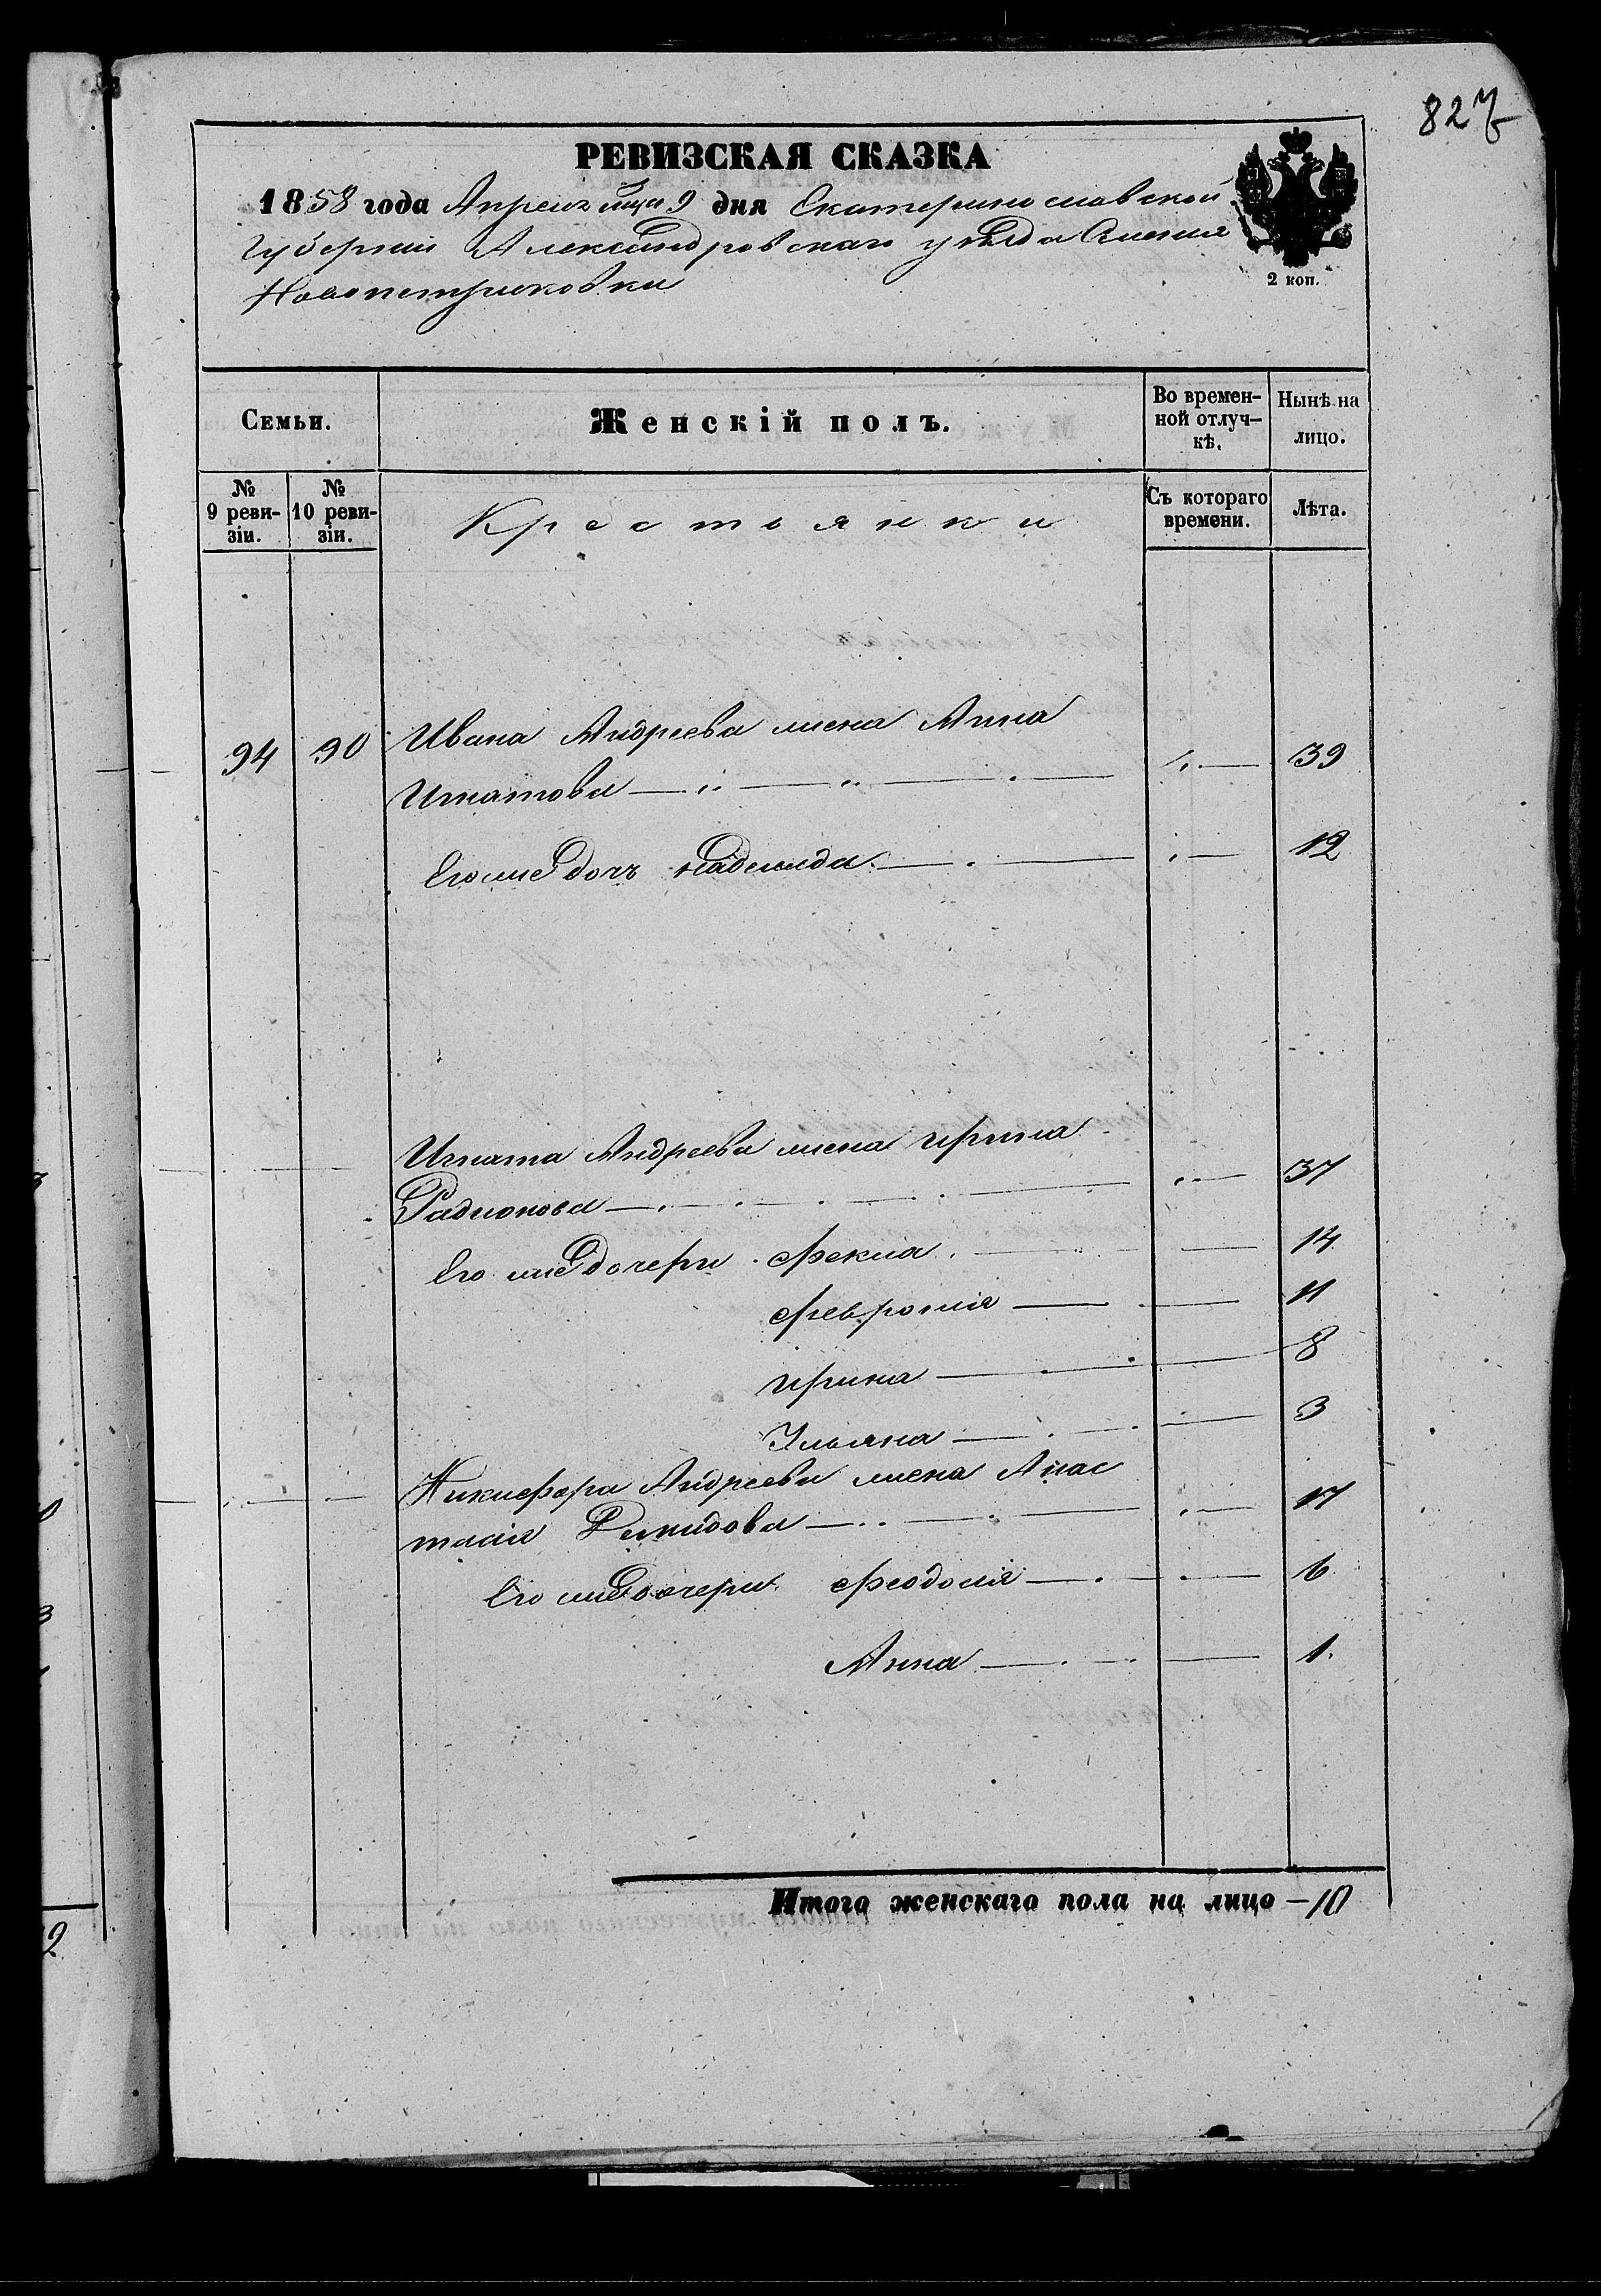 827
РЕВИЗСКАЯ СКАЗКА
1858 года Апреля мца 9 дня Екатеринославской
Губерніи Александровскаго уѣзда Имѣнія
2 коп.
Семьи.
Женскій полъ.
Во времен-
ной отлуч-
кѣ.
Нынѣ на
лицо.
№
9 реви-
зіи.
№
10 реви-
зіи.
Крестьянки
Съ котораго
времени.
Лѣта.
94 90 Ивана Андреева жена Анна
Игнатова 39
Его же дочь Надежда 12
Игната Андреева жена Ирина
Радионова 37
Его же дочери Фекла 14
Феврония 11
Ирина 8
Ульяна 3
Никифора Андреева жена Анас
тасія Демидова 17
Его же дочери Феодосія 6
Анна 1
Итого женскаго пола на лицо – 10
2